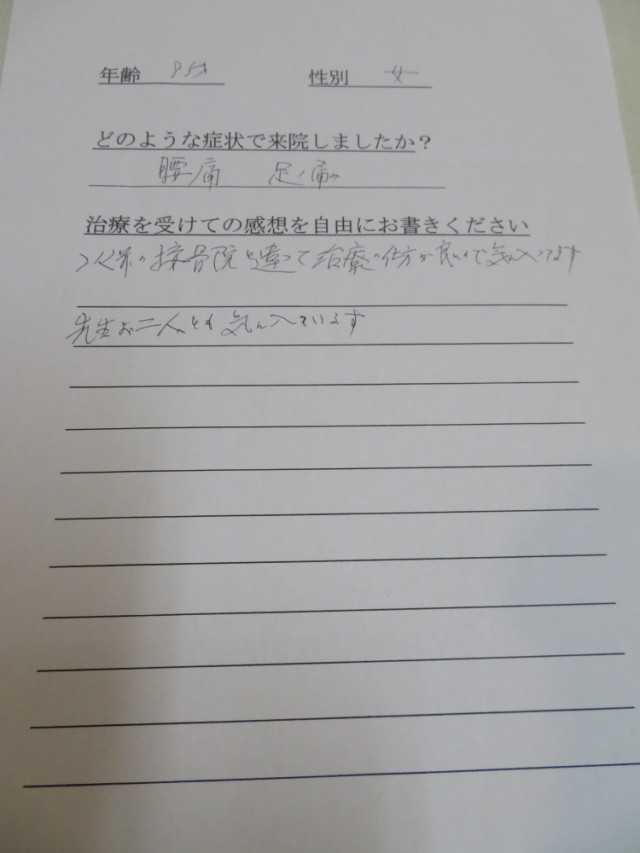 年齢 85才 性別 女
どのような症状で来院しましたか？
腰痛 足ノ痛み
治療を受けての感想を自由にお書きください
接骨院と違って治療の仕方が良いので気に入ってます
先生お二人とも気に入ています